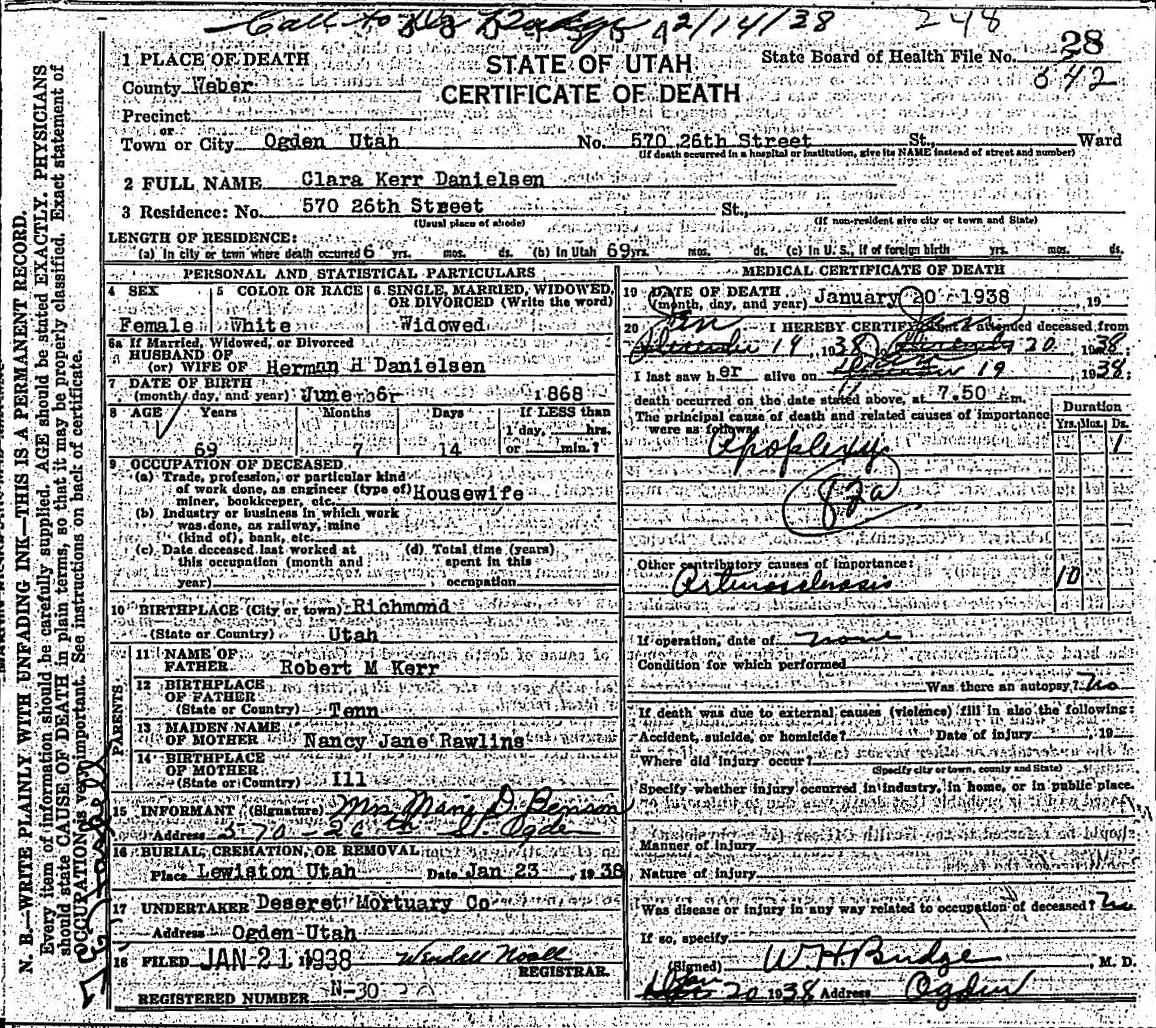 Call to Dr 2/14/38 248
28
1 PLACE OF DEATH STATE OF UTAH State Board of Health File No. 542
County Weber CERTIFICATE OF DEATH
Precinct
or
Town or City Ogden Utah No. 570 26th Street St., Ward
(If death occurred in a hospital or institution, give its NAME instead of street and number)
2 FULL NAME Clara Kerr Danielsen
3 Residence: No. 570 26th Street St.,
(Usual place of abode) (If non-resident give city or town and State)
LENGTH OF RESIDENCE:
(a) In city or town where death occurred 6 yrs. mos. ds. (b) In Utah 69 yrs. mos. ds. (c) In U. S., if of foreign birth yrs. mos. ds.
PERSONAL AND STATISTICAL PARTICULARS
4 SEX 5 COLOR OR RACE 6 SINGLE, MARRIED, WIDOWED, OR DIVORCED (Write the word)
Female White Widowed
6a If Married, Widowed, or Divorced
HUSBAND OF
(or) WIFE OF Herman H Danielsen
7 DATE OF BIRTH
(month, day, and year) June 6 1868
8 AGE Years Months Days If LESS than
1 day, hrs.
69 7 14 or min.?
9 OCCUPATION OF DECEASED
(a) Trade, profession, or particular kind
of work done, as engineer (type of)
miner, bookkeeper, etc. Housewife
(b) Industry or business in which work
was done, as railway, mine
(kind of), bank, etc.
(c) Date deceased last worked at (d) Total time (years)
this occupation (month and spent in this
year) occupation
10 BIRTHPLACE (City or town) Richmond
(State or Country) Utah
PARENTS
11 NAME OF
FATHER Robert M Kerr
12 BIRTHPLACE
OF FATHER
(State or Country) Tenn
13 MAIDEN NAME
OF MOTHER Nancy Jane Rawlins
14 BIRTHPLACE
OF MOTHER
(State or Country) Ill
15 INFORMANT (Signature) Mrs Mary D. Benson
Address 570 - 26 th St. Ogden
16 BURIAL, CREMATION, OR REMOVAL
Place Lewiston Utah Date Jan 23, 1938
17 UNDERTAKER Deseret Mortuary Co
Address Ogden Utah
18 FILED JAN 21 1938 Wendell Noall
REGISTRAR.
REGISTERED NUMBER N-30
MEDICAL CERTIFICATE OF DEATH
19 DATE OF DEATH
(month, day, and year) January 20 1938, 19
20 I HEREBY CERTIFY, That I attended deceased from
Jan 19, 1938, Jan 20, 1938;
I last saw her alive on Jan 19, 1938;
death occurred on the date stated above, at 7.50 m.
The principal cause of death and related causes of importance
were as follows: Duration
Yrs. Mos. Ds.
Apoplexy 1
82a
Other contributory causes of importance:
Arteriosclerosis 10
If operation, date of none
Condition for which performed
Was there an autopsy? No
If death was due to external causes (violence) fill in also the following:
Accident, suicide, or homicide? Date of injury, 19
Where did injury occur?
(Specify city or town, county and State)
Specify whether injury occurred in industry, in home, or in public place.
Manner of injury
Nature of injury
Was disease or injury in any way related to occupation of deceased? No
If so, specify
(Signed) W. H. Budge, M. D.
Jan 20 1938 Address Ogden
N. B.—WRITE PLAINLY WITH UNFADING INK—THIS IS A PERMANENT RECORD.
Every item of information should be carefully supplied. AGE should be stated EXACTLY. PHYSICIANS
should state CAUSE OF DEATH in plain terms, so that it may be properly classified. Exact statement of
OCCUPATION is very important. See instructions on back of certificate.